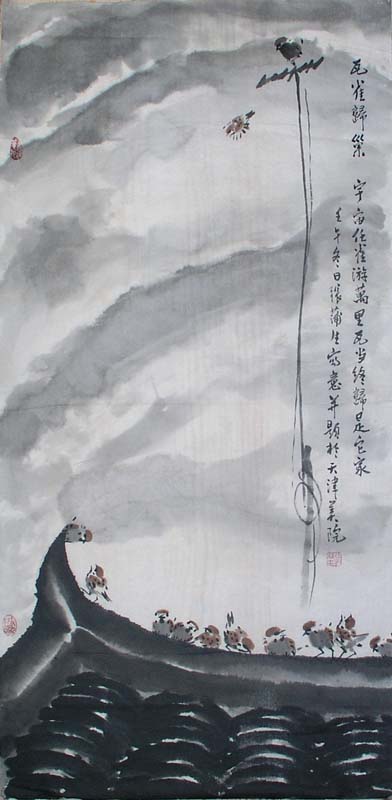 瓦雀歸巢 宇宙任雀游萬里瓦当終歸是它家
壬午冬日張蒲生寫意并題於天津美院